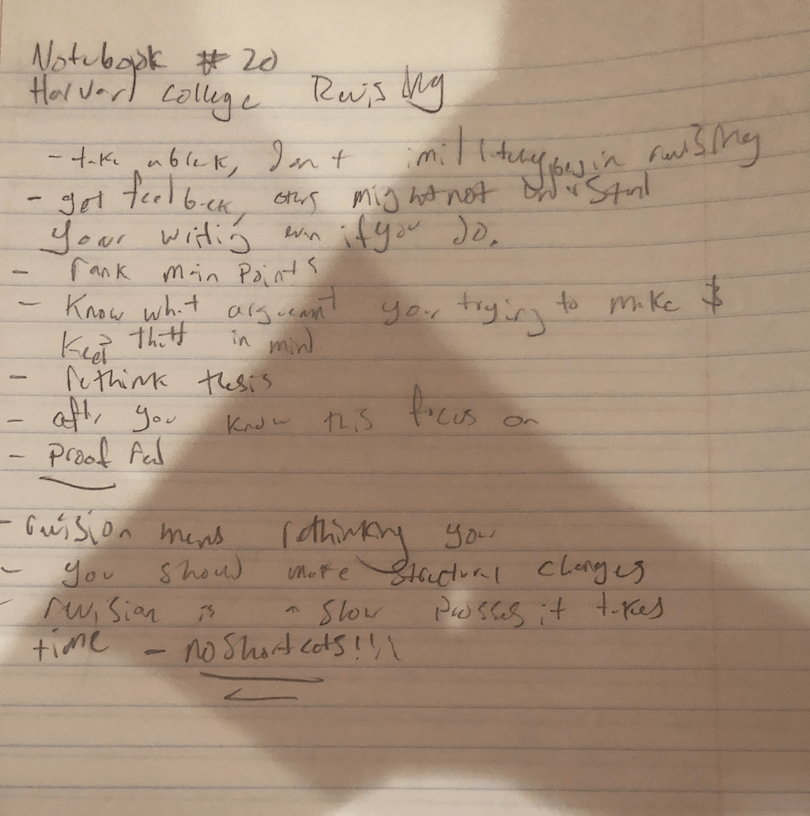 Notebook # 20
Harvard College Revising
- take a break, don't immilitely begin revising
- get feedback, others might not understand
your writing even if you do.
- rank main points
- Know what argument your trying to make &
keep that in mind
- rethink thesis
- after you know this focus on
- Proof read
- revision means rethinking your
- you should make structural changes
- revision is a slow prosses it takes
time - no shortcuts!!!